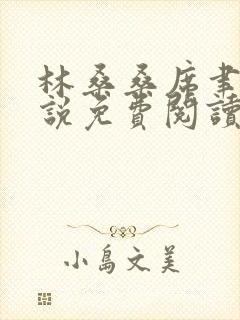 林桑桑席聿
説免費閱讀
小島文美